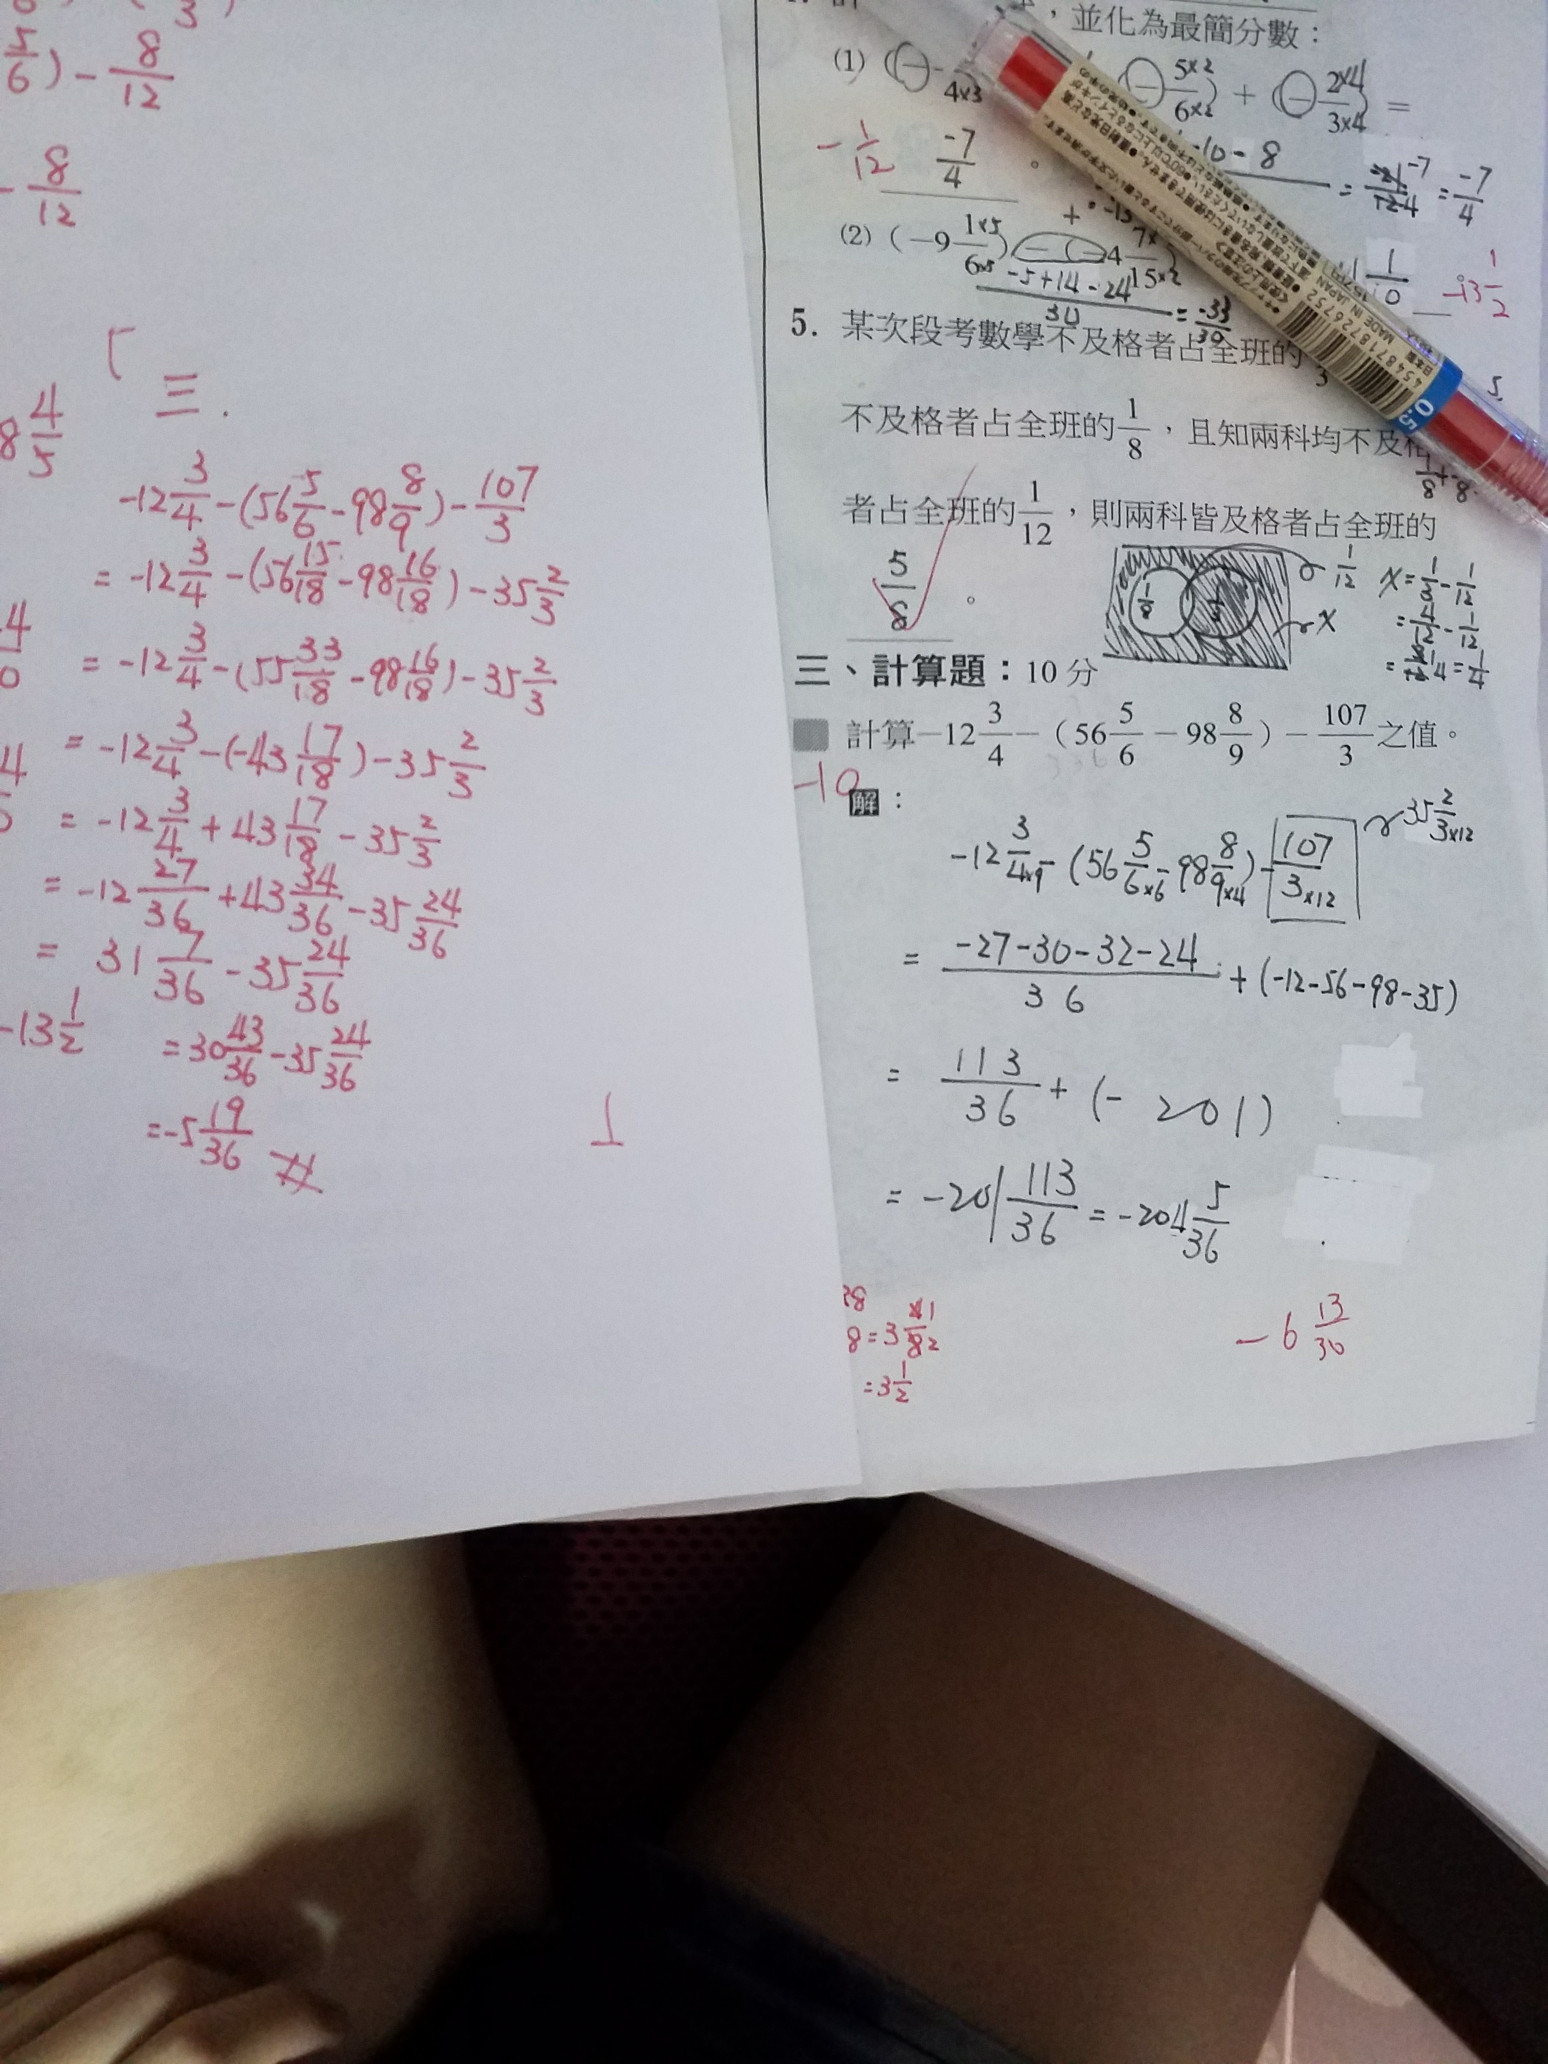 5/6) - 8/12
- 8/12
8 4/5
三.
-12 3/4 - (56 5/6 - 98 8/9) - 107/3
= -12 3/4 - (56 15/18 - 98 16/18) - 35 2/3
= -12 3/4 - (55 33/18 - 98 16/18) - 35 2/3
= -12 3/4 - (-43 17/18) - 35 2/3
= -12 3/4 + 43 17/18 - 35 2/3
= -12 27/36 + 43 34/36 - 35 24/36
= 31 7/36 - 35 24/36
-13 1/2
= 30 43/36 - 35 24/36
= -5 19/36
,並化為最簡分數:
(1) (- 4×3 (- 5×2/6×2) + (- 2×4/3×4) =
-10 - 8
= -7/4
- 1/12 -7/4 。
(2) (-9 1×5/6×5) - (-4 7×/15×2)
1/10 -13 1/2
-5+14-24/30 = -33/30
5. 某次段考數學不及格者占全班的 3
不及格者占全班的 1/8 ,且知兩科均不及格
者占全班的 1/12 ,則兩科皆及格者占全班的
5/8 。
1/8 1/3 1/12 x
x = 1/3 - 1/12
= 4/12 - 1/12
= 1/4
三、計算題:10 分
計算 -12 3/4 - (56 5/6 - 98 8/9) - 107/3 之值。
-10
解:
-12 3/4×9 - (56 5/6×6 - 98 8/9×4) - 107/3×12 35 2/3×12
= -27-30-32-24/36 + (-12-56-98-35)
= 113/36 + (- 201)
= -201 113/36 = -204 5/36
28
8 = 3 4 1/8 2
= 3 1/2
- 6 13/30
0.5
日本製
MADE IN JAPAN
4548718726752